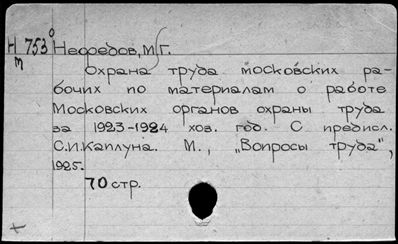 Н 753 Нефедов, М.Г.
м
Охрана труда московских ра-
бочих по материалам о работе
Московских органов охраны труда
за 1923-1924 хоз. год. С предисл.
С.И.Каплуна. М., „Вопросы труда",
1925.
70 стр.